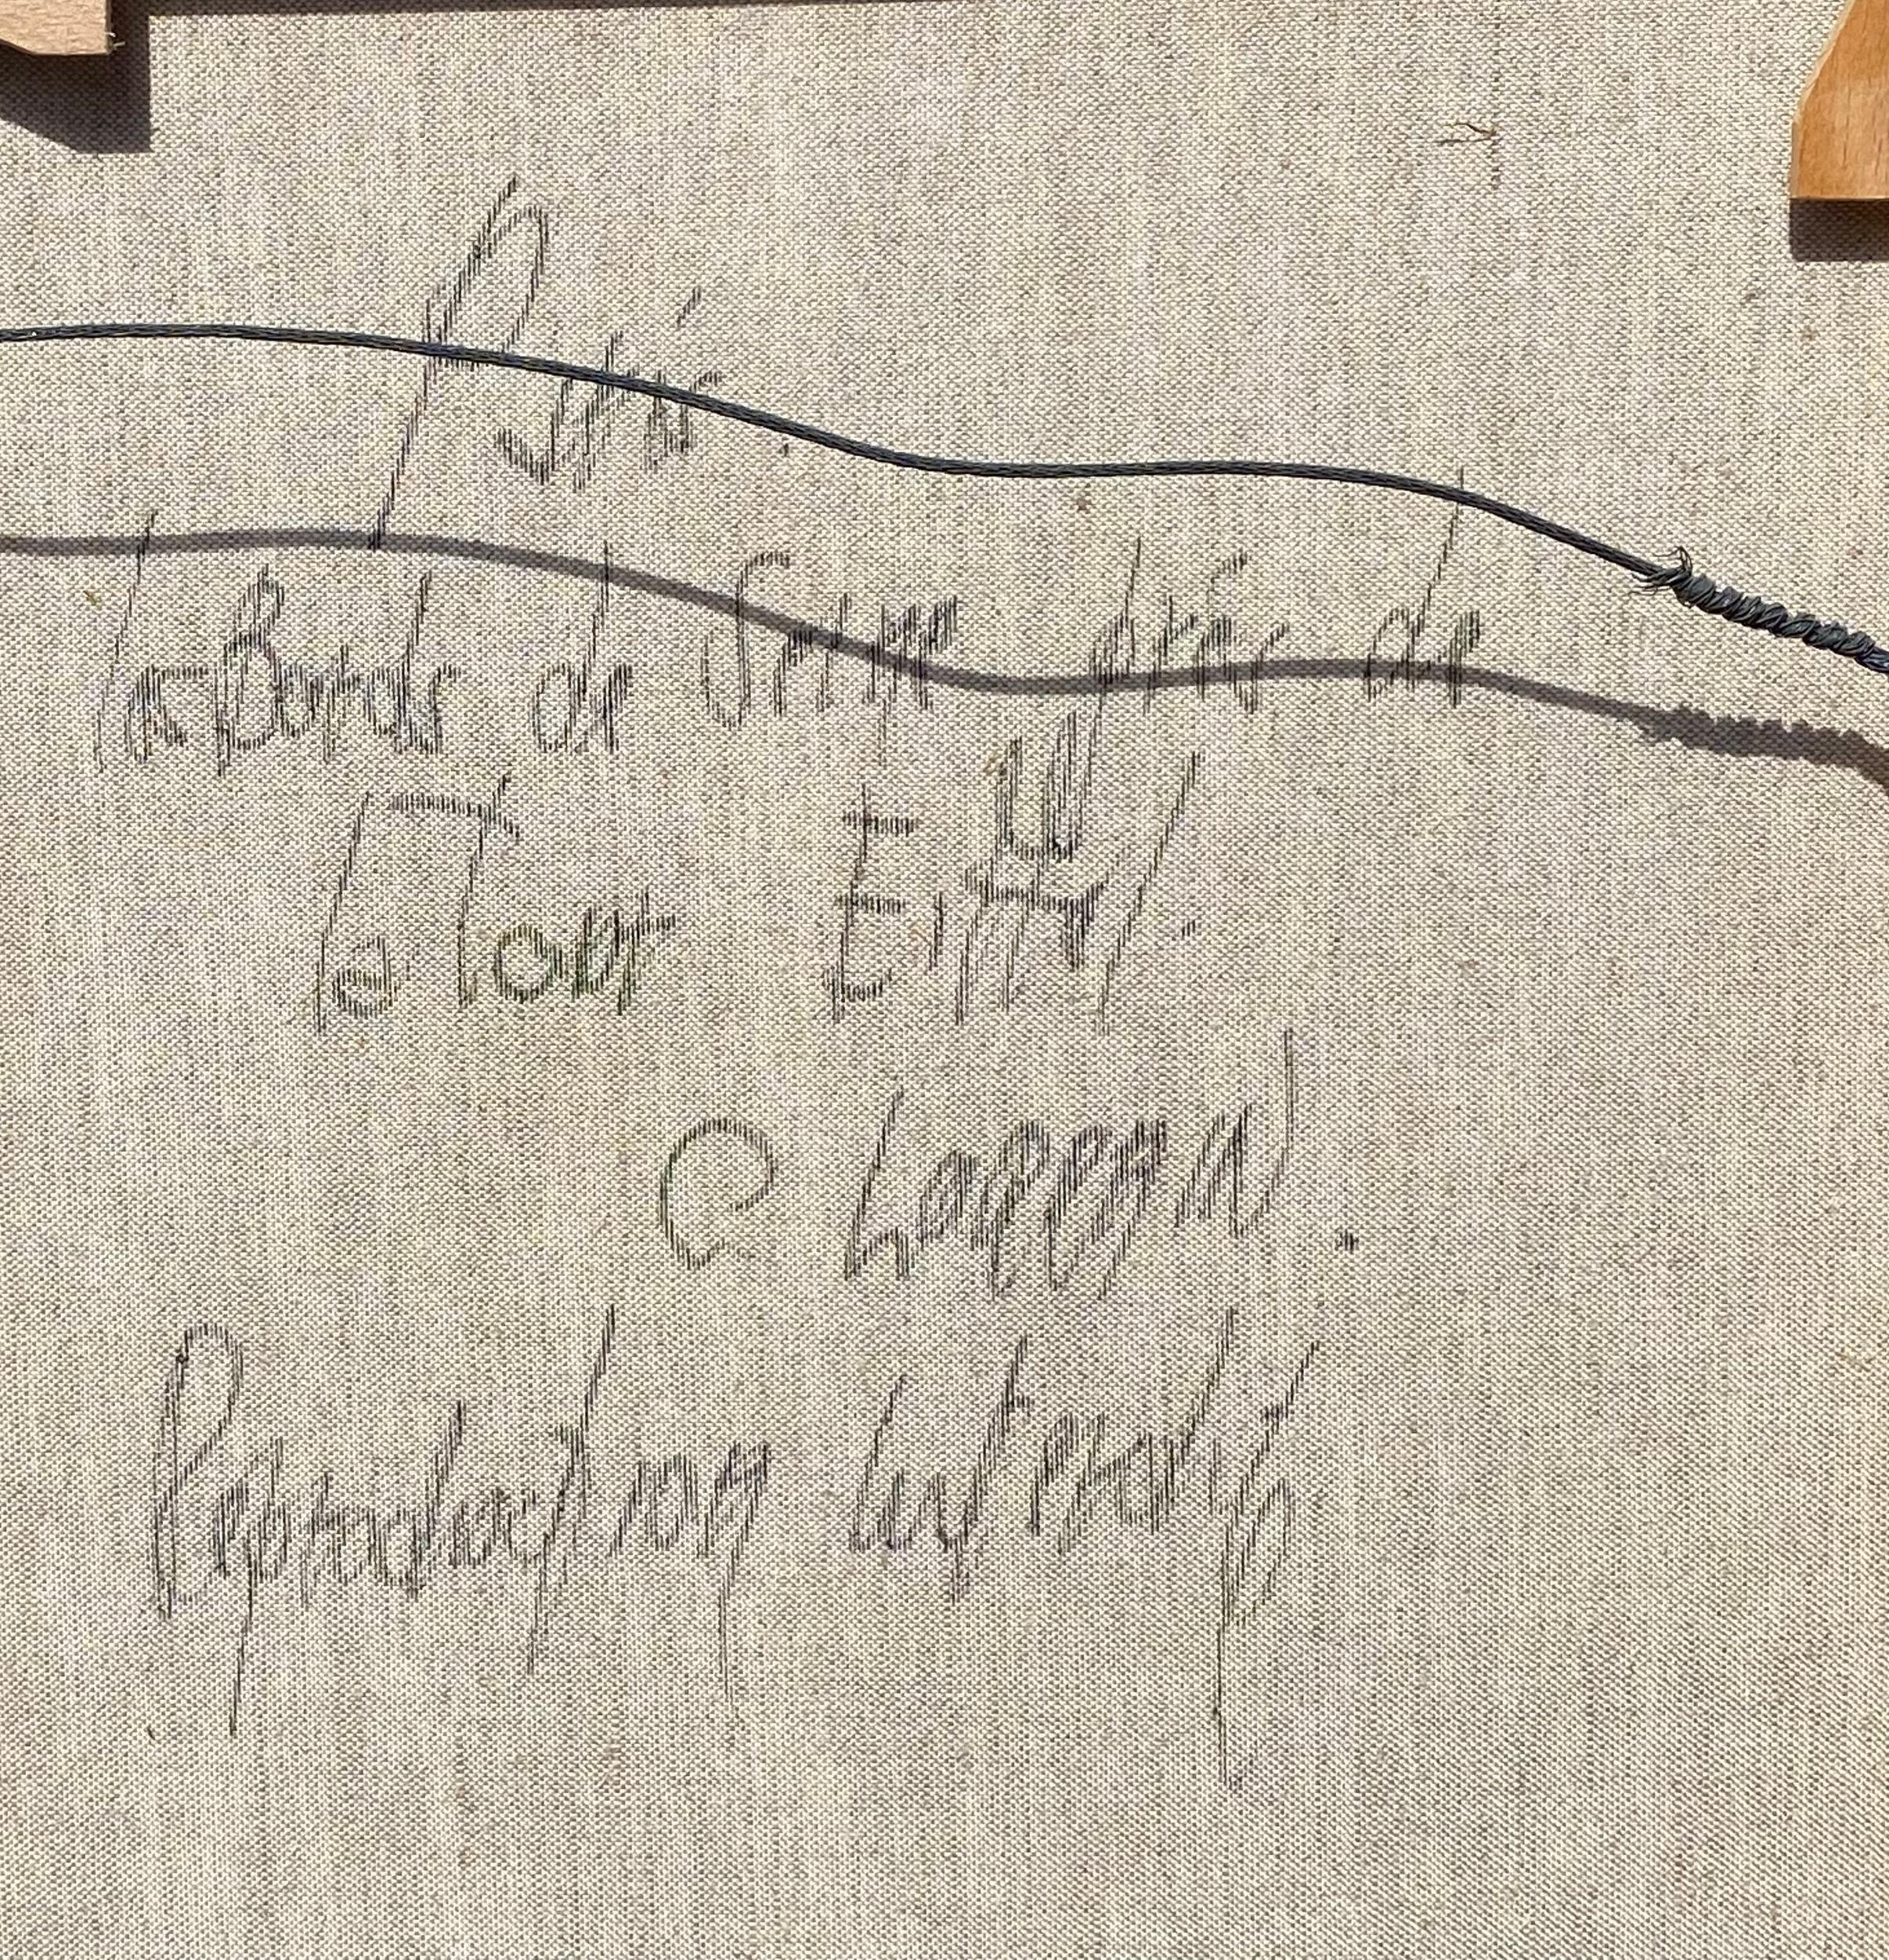 Paris.
les Bords de Seine près de
la Tour Eiffel.
C
Reproduction Interdite